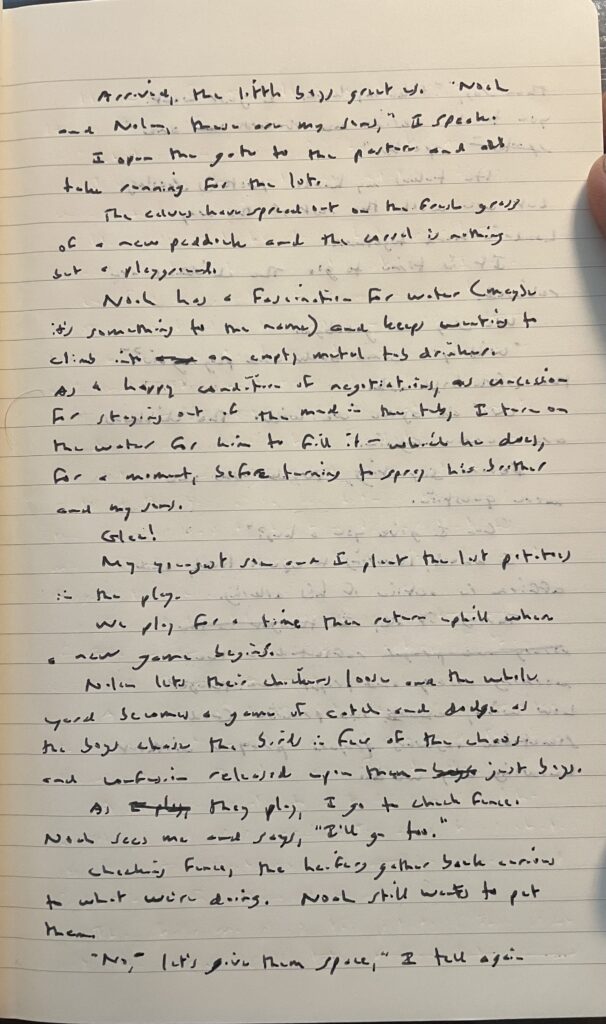 Arrived, the little boys greet us. "Noah
and Nolan, these are my sons," I speak.
I open the gate to the pasture and all
take running for the lot.
The calves have spread out on the fresh grass
of a new paddock and the corral is nothing
but a playground.
Noah has a fascination for water (maybe
it's something to the name) and keeps wanting to
climb into an empty metal tub drinker.
As a happy condition of negotiations, as concession
for staying out of the mud in the tub, I turn on
the water for him to fill it – which he does,
for a moment, before turning to spray his brother
and my sons.
Glee!
My youngest son and I plant the last potatoes
in the
We play for a time then return uphill when
a new game begins.
Nolan lets their chickens loose and the whole
yard becomes a game of catch and dodge as
the boys chase the birds in of the chaos
and confusion released upon them – just boys.
As they play, I go to check fence.
Noah sees me and says, "I'll go too."
Checking fence, the heifers gather back curious
to what we're doing. Noah still wants to pet
them.
"No," let's give them space," I tell again